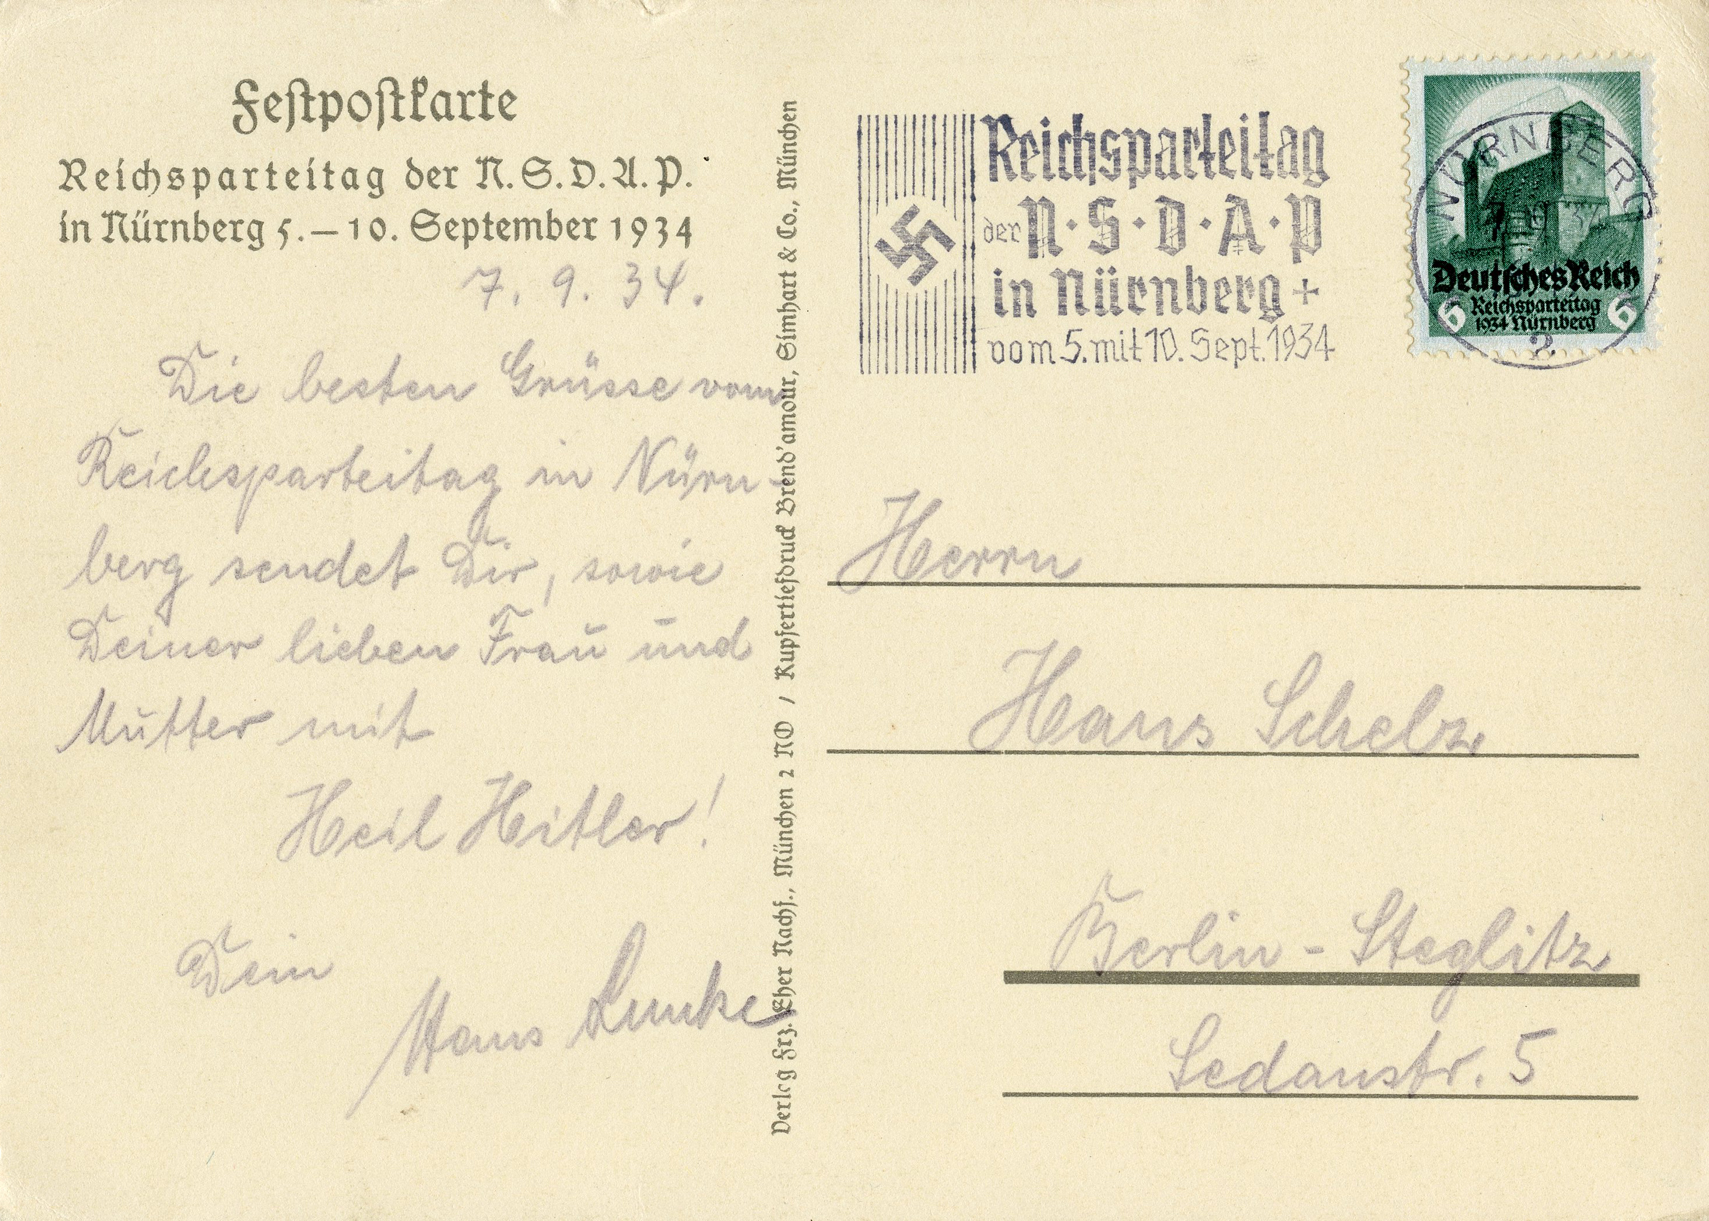 Festpostkarte
Reichsparteitag der N.S.D.A.P.
in Nürnberg 5.–10. September 1934
7. 9. 34.
Die besten Grüsse vom
Reichsparteitag in Nürn-
berg sendet Dir, sowie
Deiner lieben Frau und
Mutter mit
Heil Hitler!
Dein
Hans Lunke
Verlag Frz. Eher Nachf., München 2 NO / Kupfertiefdruck Brend'amour, Simhart & Co., München
Reichsparteitag
der N·S·D·A·P
in Nürnberg +
vom 5. mit 10. Sept. 1934
NÜRNBERG
2
Deutsches Reich
6 Reichsparteitag 6
1934 Nürnberg
Herrn
Hans Schelz.
Berlin - Steglitz
Sedanstr. 5